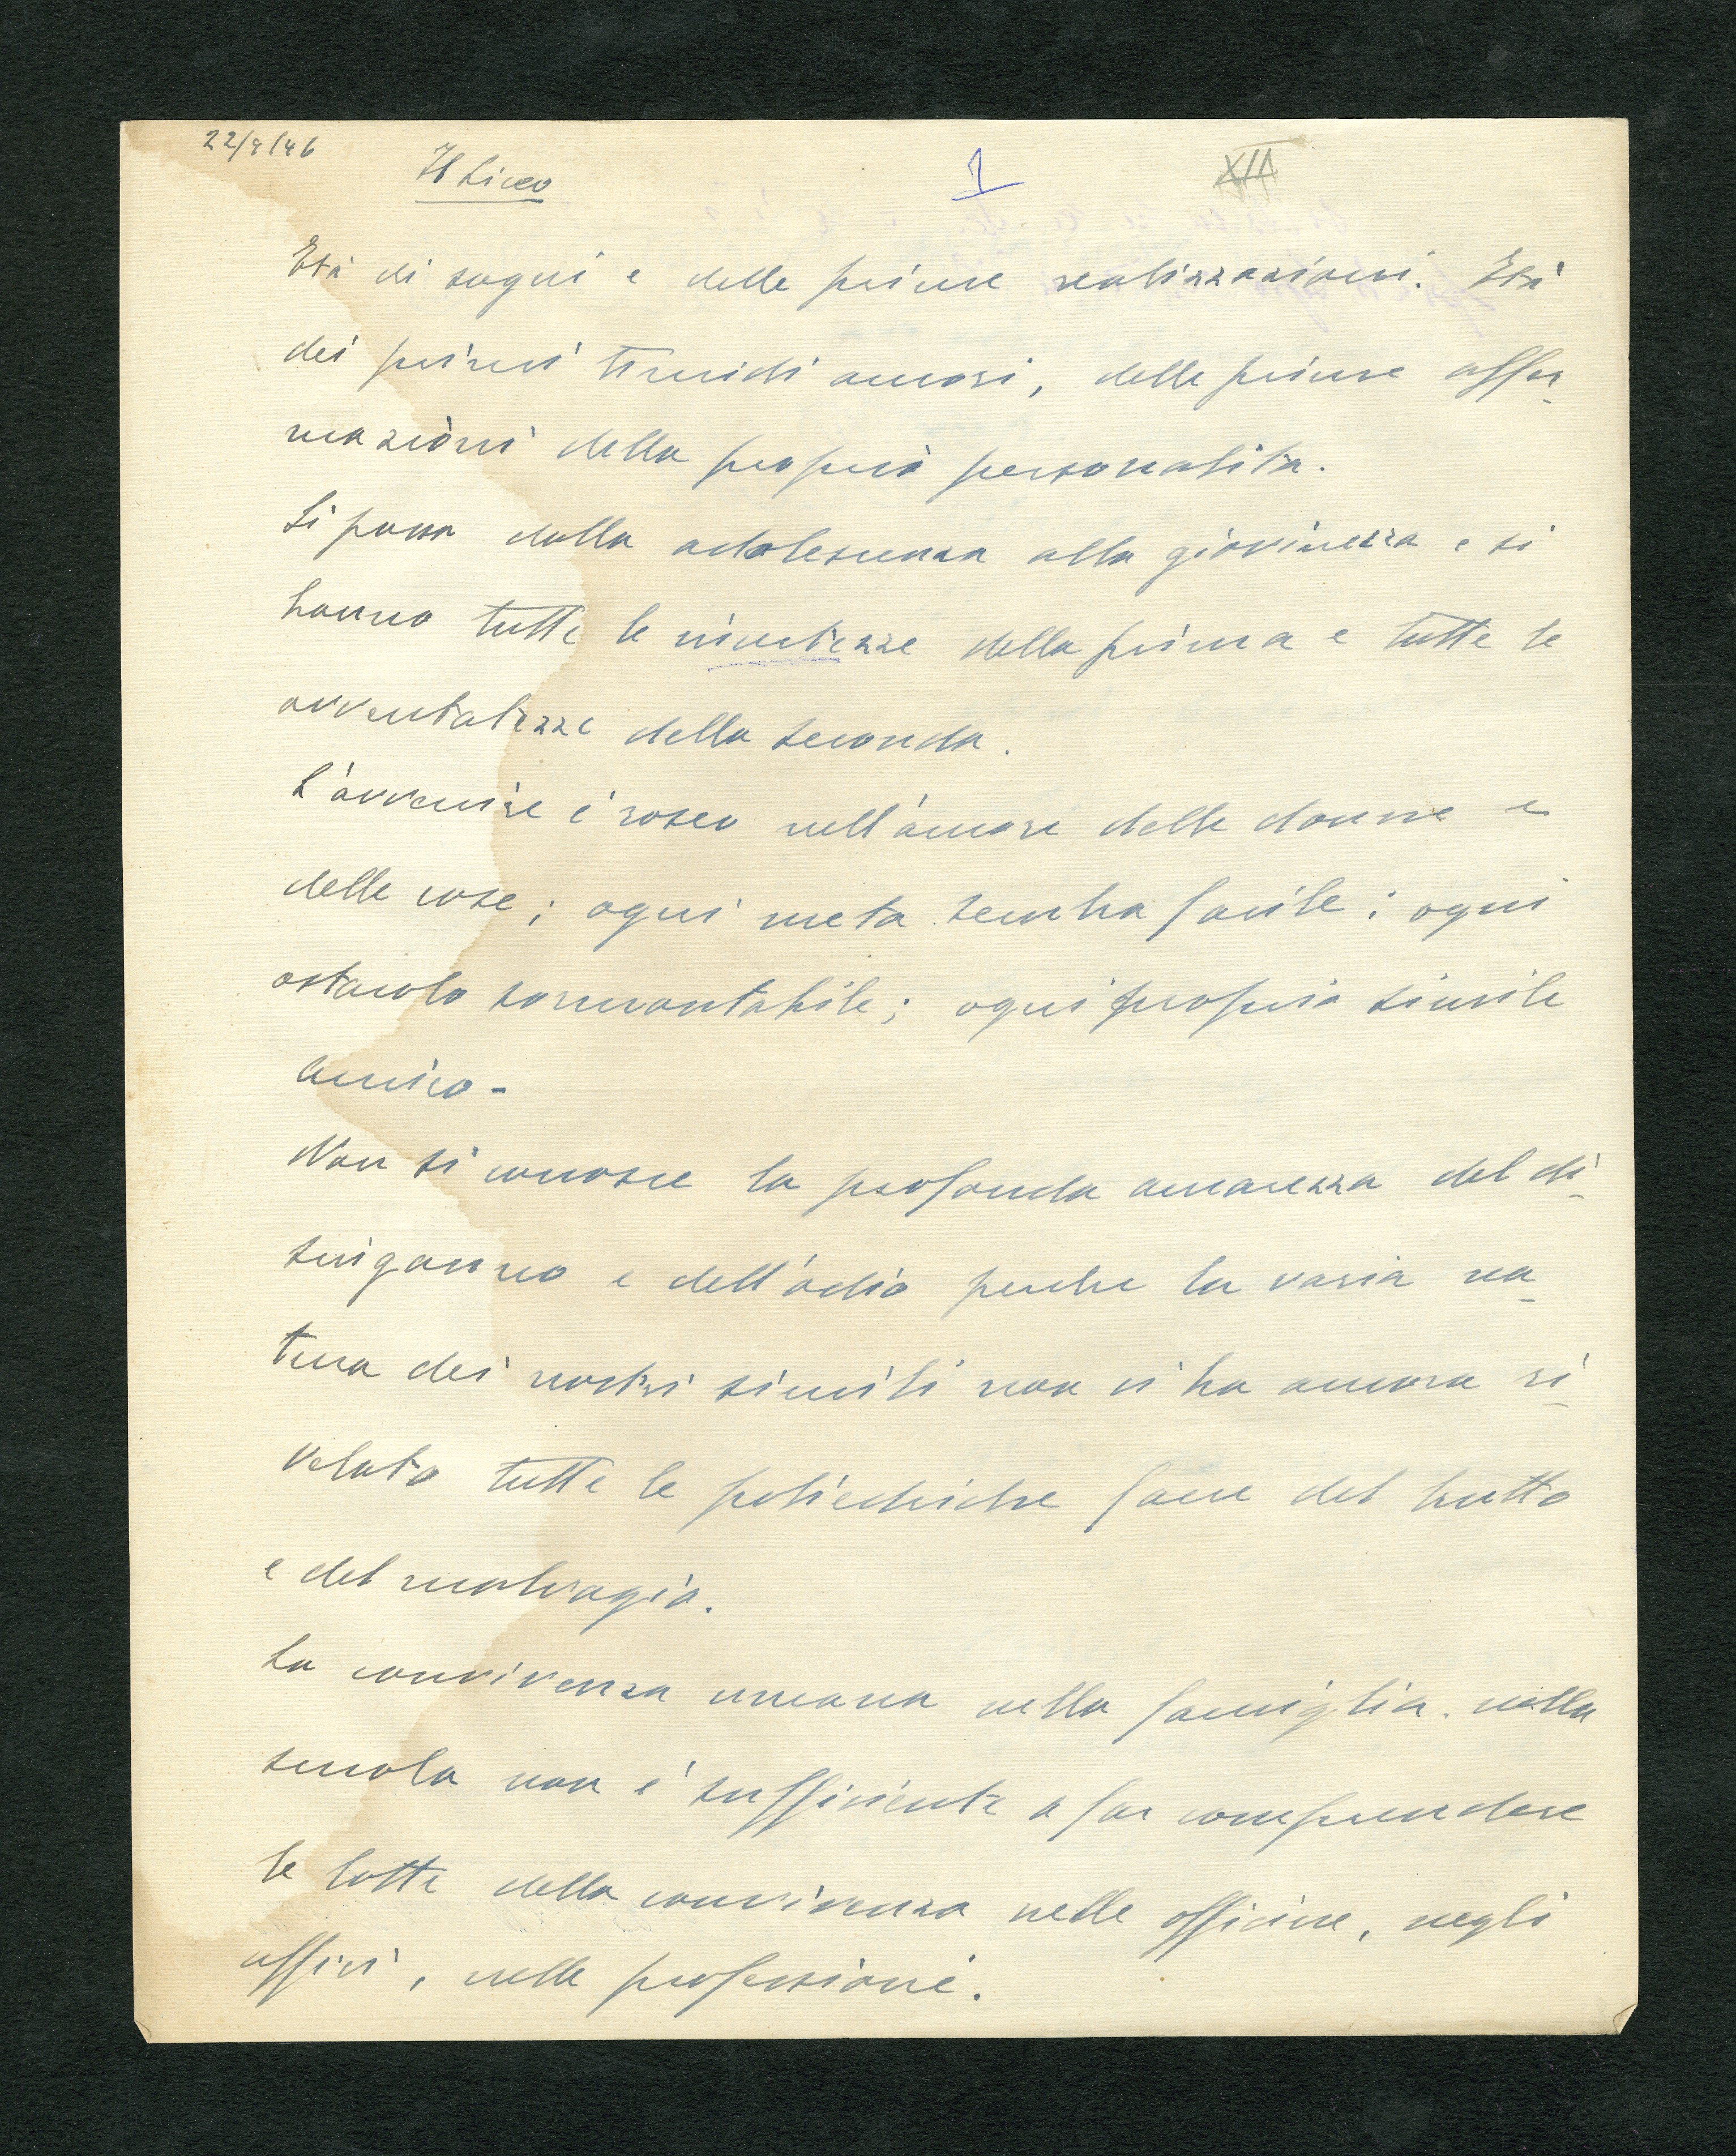 22/9/46
Il Liceo
1
XII
Età di sogni e delle prime realizzazioni. Età
dei primi timidi amori, delle prime affer-
mazioni della propria personalità.
Si passa dalla adolescenza alla giovinezza e si
hanno tutte le della prima e tutte le
avventatezze della seconda.
L'avvenire è roseo nell'amore delle donne e
delle cose; ogni meta sembra facile; ogni
ostacolo sormontabile; ogni proprio simile
amico -
Non si conosce la profonda amarezza del di-
singanno e dell'odio perché la varia na-
tura dei nostri simili non ci ha ancora ri-
velato tutte le poliedriche facce del brutto
e del malvagio.
La convivenza umana nella famiglia, nella
scuola non è sufficiente a far comprendere
le lotte della convivenza nelle officine, negli
uffici, nelle professioni.